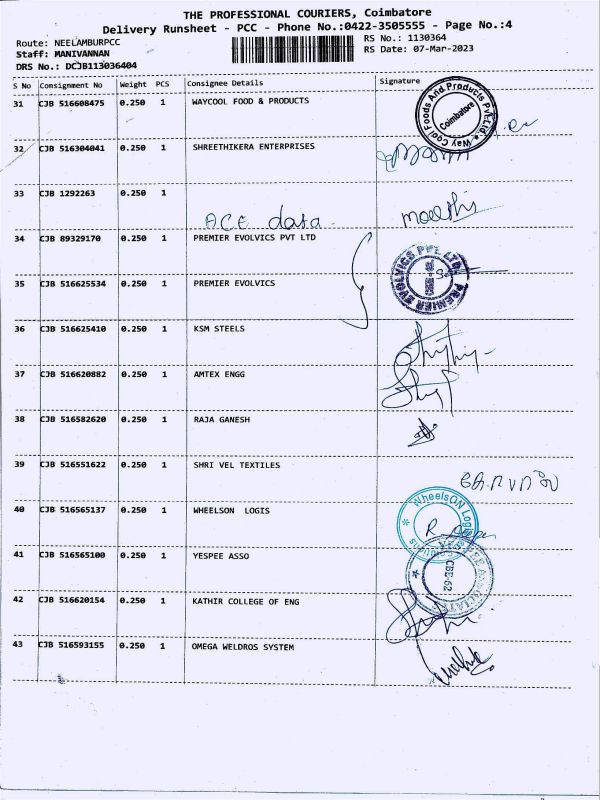 THE PROFESSIONAL COURIERS, Coimbatore
Delivery Runsheet - PCC - Phone No.:0422-3505555 - Page No.:4
Route: NEELAMBURPCC RS No.: 1130364
Staff: MANIVANNAN RS Date: 07-Mar-2023
DRS No.: DCJB113036404
S No Consignment No Weight PCS Consignee Details Signature
31 CJB 516608475 0.250 1 WAYCOOL FOOD & PRODUCTS
Way Cool Foods And Products Pvt.Ltd.
Coimbatore
32 CJB 516304041 0.250 1 SHREETHIKERA ENTERPRISES
33 CJB 1292263 0.250 1
ACE data
34 CJB 89329170 0.250 1 PREMIER EVOLVICS PVT LTD
PREMIER EVOLVICS PVT LTD
35 CJB 516625534 0.250 1 PREMIER EVOLVICS
36 CJB 516625410 0.250 1 KSM STEELS
37 CJB 516620882 0.250 1 AMTEX ENGG
38 CJB 516582620 0.250 1 RAJA GANESH
39 CJB 516551622 0.250 1 SHRI VEL TEXTILES
40 CJB 516565137 0.250 1 WHEELSON LOGIS
WheelsON Logis
41 CJB 516565100 0.250 1 YESPEE ASSO
CBE-62
42 CJB 516620154 0.250 1 KATHIR COLLEGE OF ENG
43 CJB 516593155 0.250 1 OMEGA WELDROS SYSTEM